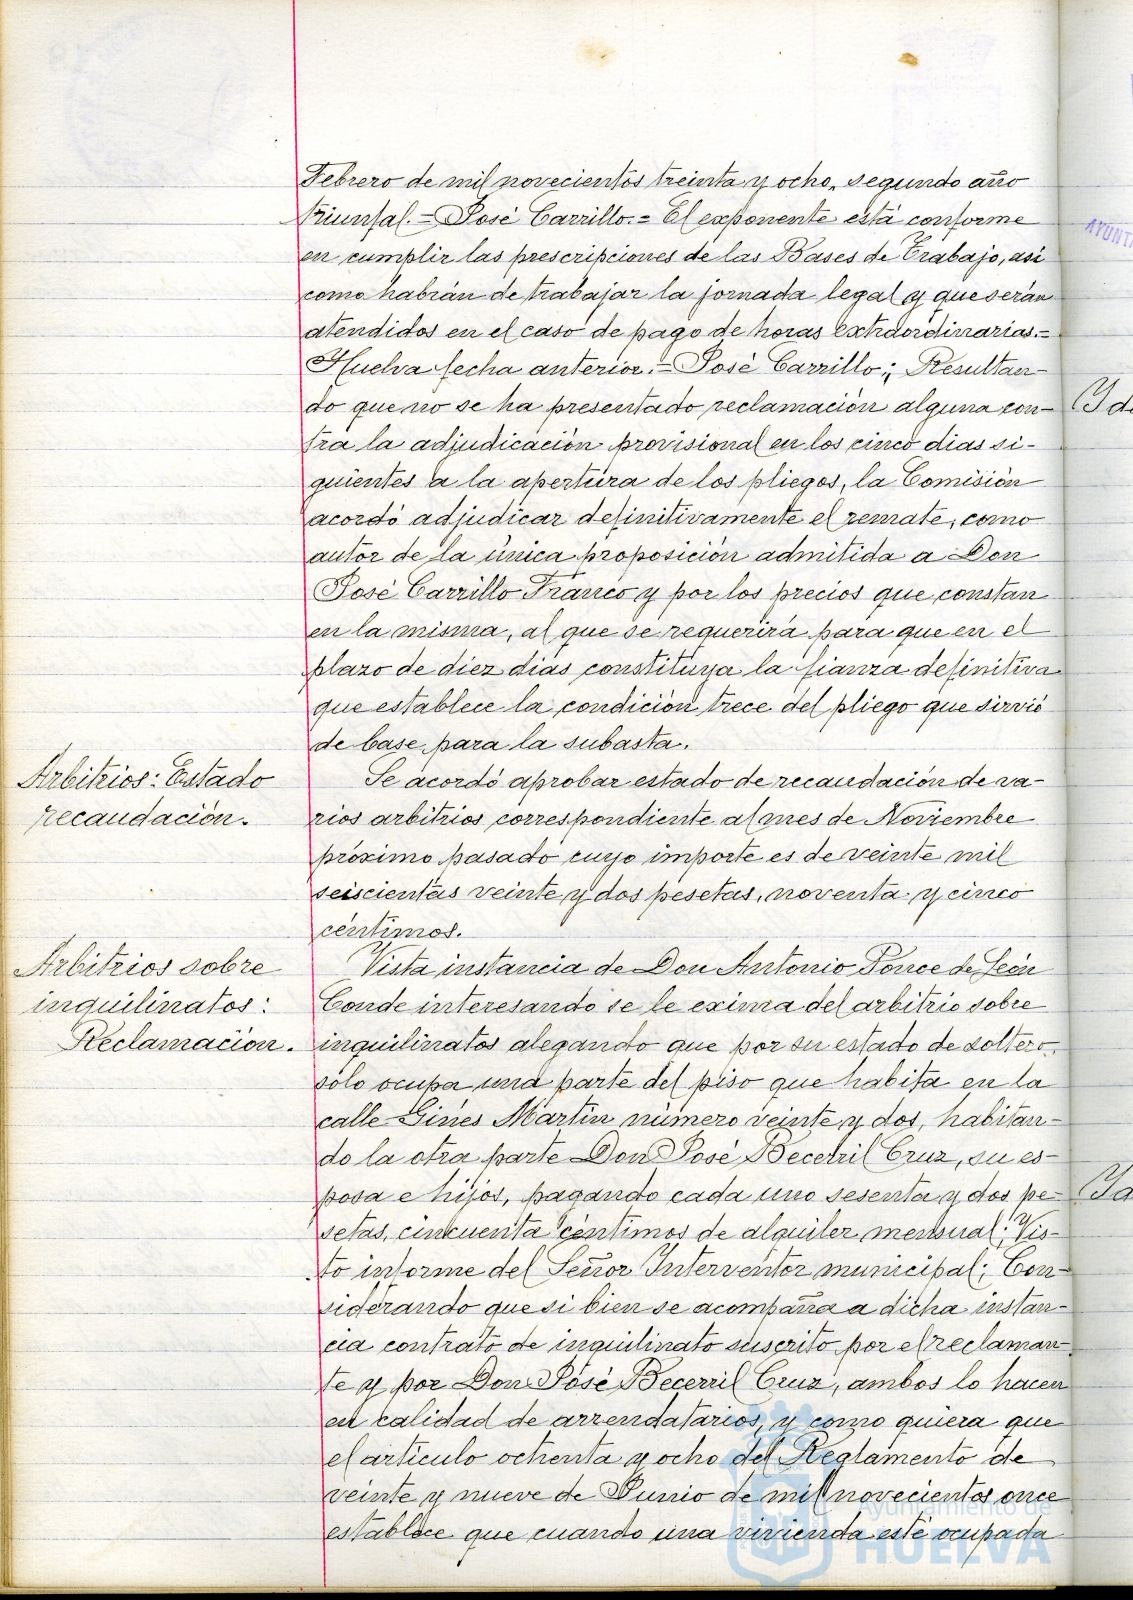 Febrero de mil novecientos treinta y ocho, segundo año
triunfal.= José Carrillo.= El exponente está conforme
en cumplir las prescripciones de las Bases de Trabajo, así
como habrán de trabajar la jornada legal y que serán
atendidos en el caso de pago de horas extraordinarias.=
Huelva fecha anterior.= José Carrillo; Resultan-
do que no se ha presentado reclamación alguna con-
tra la adjudicación provisional en los cinco dias si-
guientes a la apertura de los pliegos, la Comisión
acordó adjudicar definitivamente el remate, como
autor de la única proposición admitida a Don
José Carrillo Franco y por los precios que constan
en la misma, al que se requerirá para que en el
plazo de diez dias constituya la fianza definitiva
que establece la condición trece del pliego que sirvió
de base para la subasta.
Arbitrios: Estado
recaudación.
Se acordó aprobar estado de recaudación de va-
rios arbitrios correspondiente al mes de Noviembre
próximo pasado cuyo importe es de veinte mil
seiscientas veinte y dos pesetas, noventa y cinco
céntimos.
Arbitrios sobre
inquilinatos:
Reclamación.
Vista instancia de Don Antonio Ponce de León
Conde interesando se le exima del arbitrio sobre
inquilinatos alegando que por su estado de soltero,
sólo ocupa una parte del piso que habita en la
calle Ginés Martín número veinte y dos, habitan-
do la otra parte Don José Becerril Cruz, su es-
posa e hijos, pagando cada uno sesenta y dos pe-
setas, cincuenta céntimos de alquiler mensual; Vis-
to informe del Señor Interventor municipal; Con-
siderando que si bien se acompaña a dicha instan-
cia contrato de inquilinato suscrito por el reclaman-
te y por Don José Becerril Cruz, ambos lo hacen
en calidad de arrendatarios, y como quiera que
el artículo ochenta y ocho del Reglamento de
veinte y nueve de Junio de mil novecientos once
establece que cuando una vivienda esté ocupada
Ayuntamiento de
HUELVA